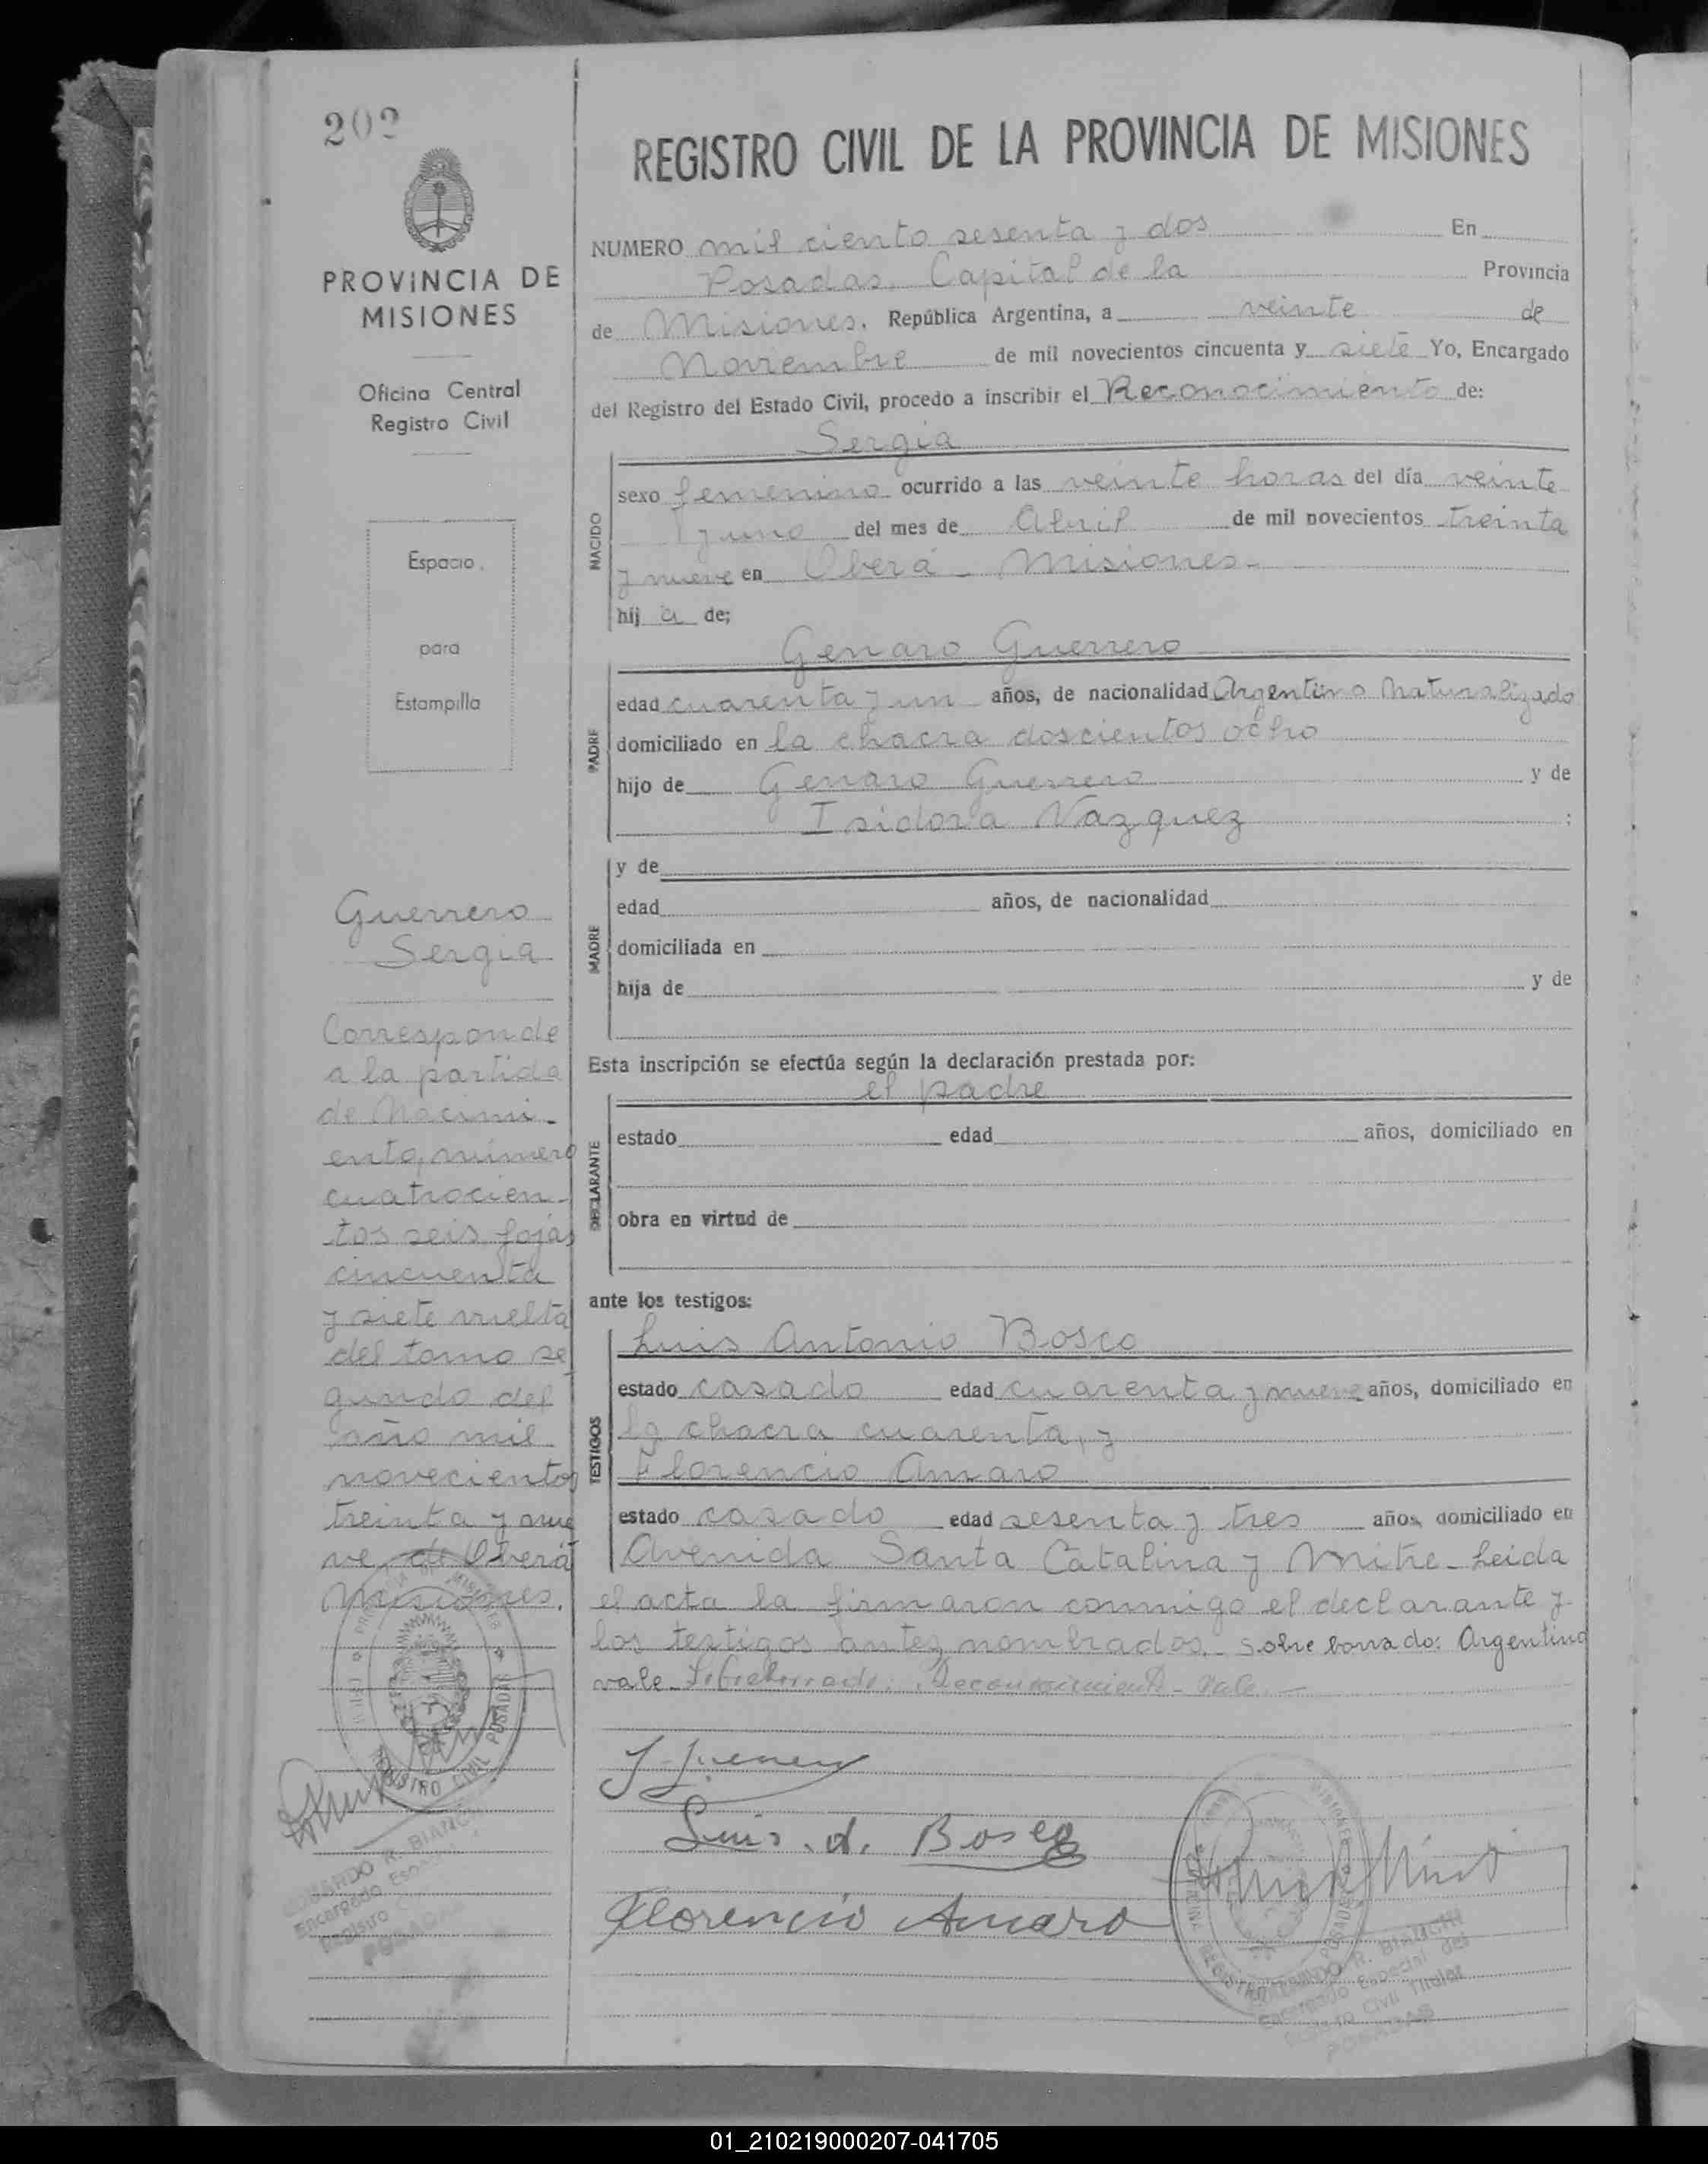 202
PROVINCIA DE
MISIONES
Oficina Central
Registro Civil
Espacio
para
Estampilla
Guerrero
Sergia
Corresponde
a la partida
de Nacimi-
ento, número
cuatrocien-
tos seis, fojas
cincuenta
y siete vuelta
del tomo se
gundo del
año mil
novecientos
treinta y nue
ve, de Oberá
Misiones.
REGISTRO CIVIL DE LA PROVINCIA DE MISIONES
NUMERO mil ciento sesenta y dos En
Posadas, Capital de la Provincia
de Misiones, República Argentina, a veinte de
Noviembre de mil novecientos cincuenta y siete Yo, Encargado
del Registro del Estado Civil, procedo a inscribir el Reconocimiento de:
Sergia
NACIDO
sexo femenino ocurrido a las veinte horas del día veinte
y uno del mes de Abril de mil novecientos treinta
y nueve en Oberá - Misiones-
hij a de;
Genaro Guerrero
PADRE
edad cuarenta y un años, de nacionalidad Argentino Naturalizado
domiciliado en la chacra doscientos ocho
hijo de Genaro Guerrero y de
Isidora Vazquez ;
MADRE
y de
edad años, de nacionalidad
domiciliada en
hija de y de
Esta inscripción se efectúa según la declaración prestada por:
el padre
DECLARANTE
estado edad años, domiciliado en
obra en virtud de
ante los testigos:
TESTIGOS
Luis Antonio Bosco
estado casado edad cuarenta y nueve años, domiciliado en
la chacra cuarenta, y
Florencio Amaro
estado casado edad sesenta y tres años, domiciliado en
Avenida Santa Catalina y Mitre- Leida
el acta la firmaron conmigo el declarante y
los testigos antes nombrados.- Sobre borrado: Argentino
vale. Sobreborrado: Reconocimiento - Vale.-
Luis. A. Bosco
Florencio Amaro
REGISTRO CIVIL POSADAS
R. BIANCHI
Encargado Especial del
Registro Civil Titular
POSADAS
01_210219000207-041705